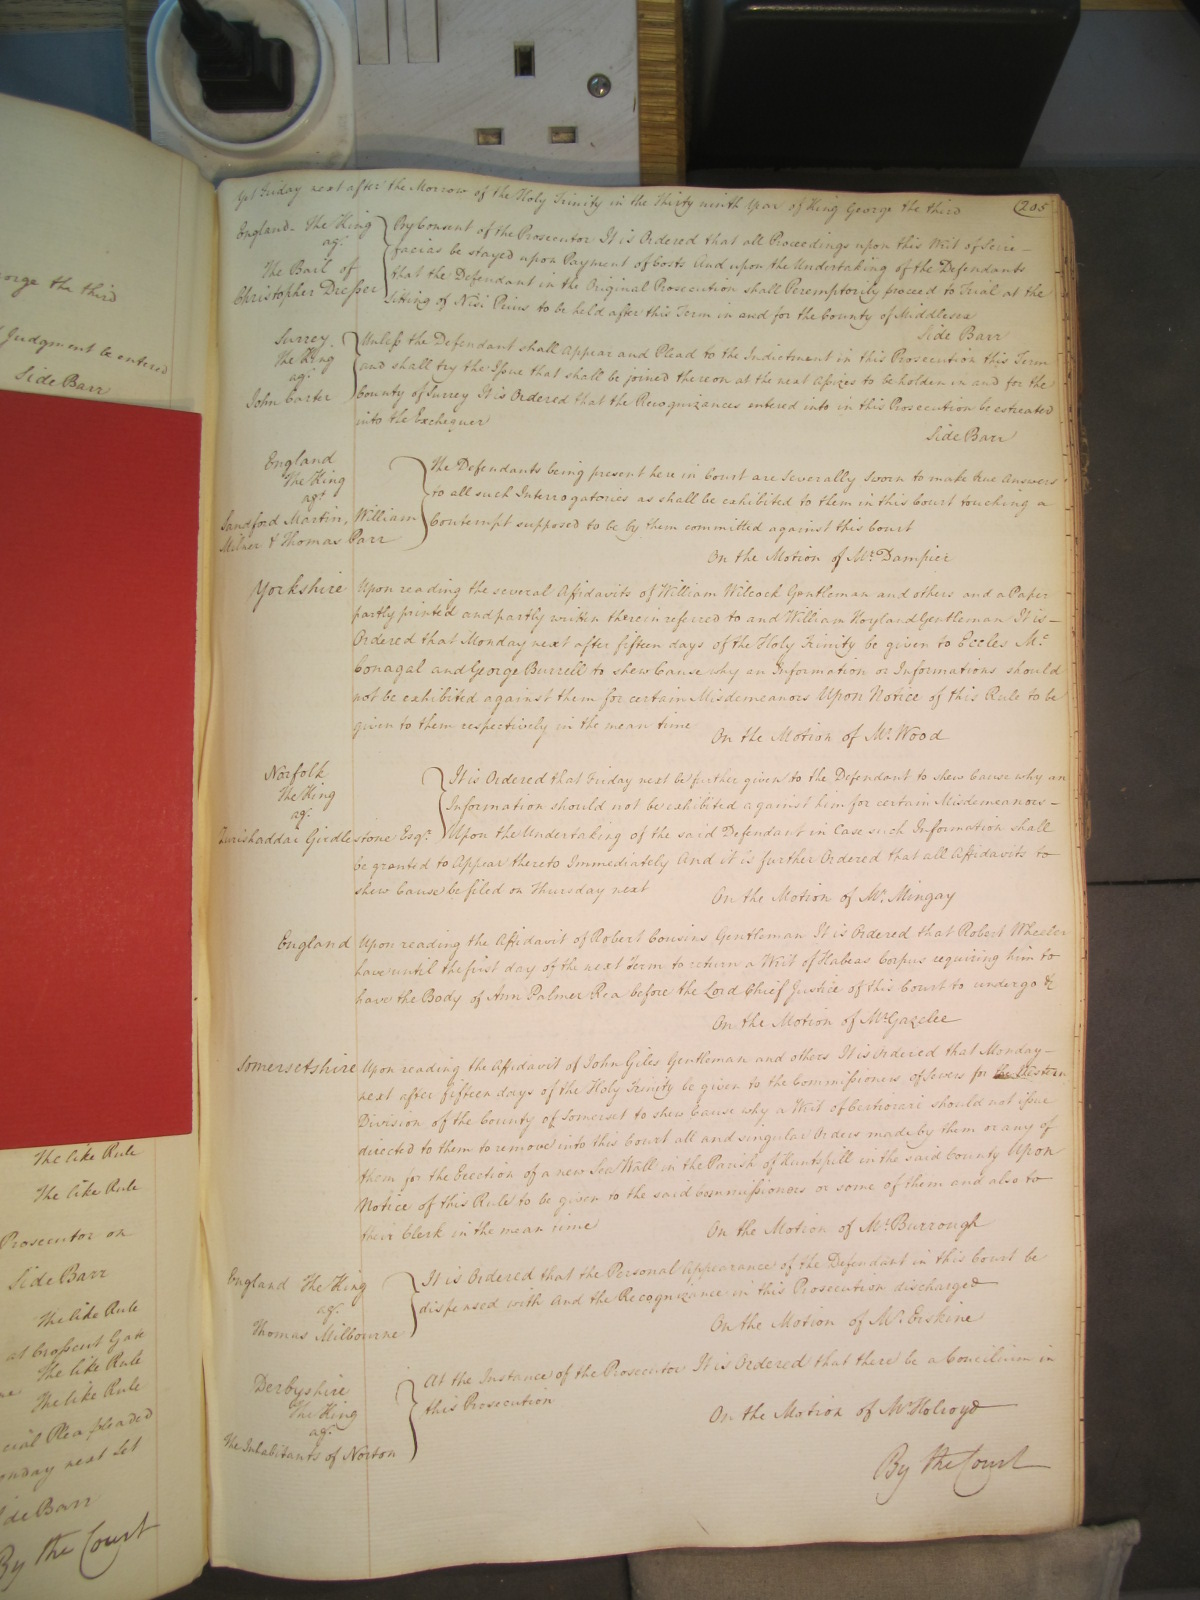 orge the third
Judgment be entered
Side Barr
The like Rule
The like Rule
Prosecutor on
Side Barr
The like Rule
at Crescent Gate
The like Rule
The like Rule
cial Plea pleaded
onday next Let
Side Barr
By the Court
Yet Friday next after the Morrow of the Holy Trinity in the Thirty ninth Year of King George the third
(205
England - The King
agt
The Bail of
Christopher Dresser
By Consent of the Prosecutor It is Ordered that all Proceedings upon this Writ of Scire -
facias be stayed upon Payment of Costs And upon the Undertaking of the Defendants
that the Defendant in the Original Prosecution shall Peremptorily proceed to Trial at the
Sitting of Nisi Prius to be held after this Term in and for the County of Middlesex
Side Barr
Surrey
The King
agt
John Carter
Unless the Defendant shall Appear and Plead to the Indictment in this Prosecution this Term
and shall try the Issue that shall be joined thereon at the next Assizes to be holden in and for the
County of Surrey It is Ordered that the Recognizances entered into in this Prosecution be estreated
into the Exchequer
Side Barr
England
The King
agt
Sandford Martin, William
Milner & Thomas Parr
The Defendants being present here in Court are Severally Sworn to make true Answers
to all such Interrogatories as shall be exhibited to them in this Court touching a
Contempt supposed to be by them committed against this Court
On the Motion of Mr. Dampier
Yorkshire
Upon reading the several Affidavits of William Wilcock Gentleman and others and a Paper
partly printed and partly written therein referred to and William Hoyland Gentleman It is -
Ordered that Monday next after fifteen days of the Holy Trinity be given to Eccles Mc
Conagal and George Burrell to shew Cause why an Information or Informations should
not be exhibited against them for certain Misdemeanors Upon Notice of this Rule to be
given to them respectively in the mean time
On the Motion of Mr. Wood
Norfolk
The King
agt
Zurishaddai Girdlestone Esqr.
It is Ordered that Friday next be further given to the Defendant to shew Cause why an
Information should not be exhibited against him for certain Misdemeanors -
Upon the Undertaking of the said Defendant in Case such Information shall
be granted to Appear thereto Immediately And it is further Ordered that all Affidavits to
shew Cause be filed on Thursday next
On the Motion of Mr. Mingay
England
Upon reading the Affidavit of Robert Cousins Gentleman It is Ordered that Robert Wheeler
have until the first day of the next Term to return a Writ of Habeas Corpus requiring him to
have the Body of Ann Palmer Rea before the Lord Chief Justice of this Court to undergo &c
On the Motion of Mr Gazelee
Somersetshire
Upon reading the Affidavit of John Giles Gentleman and others It is Ordered that Monday -
next after fifteen days of the Holy Trinity be given to the Commissioners of Sewers for the Western
Division of the County of Somerset to shew Cause why a Writ of Certiorari should not issue
directed to them to remove into this Court all and singular Orders made by them or any of
them for the Erection of a new Sea Wall in the Parish of Huntspill in the said County Upon
Notice of this Rule to be given to the said Commissioners or some of them and also to
their Clerk in the mean time
On the Motion of Mr. Burrough
England The King
agt
Thomas Milbourne
It is Ordered that the Personal Appearance of the Defendant in this Court be
dispensed with And the Recognizance in this Prosecution discharged
On the Motion of Mr. Erskine
Derbyshire
The King
agt
The Inhabitants of Norton
At the Instance of the Prosecutor It is Ordered that there be a Concilium in
this Prosecution
On the Motion of Mr Holroyd
By the Court